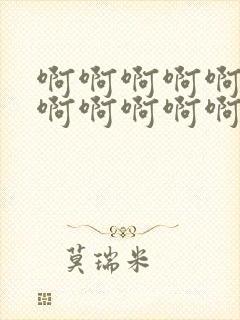 啊啊啊啊啊
啊啊啊啊啊
莫瑞米